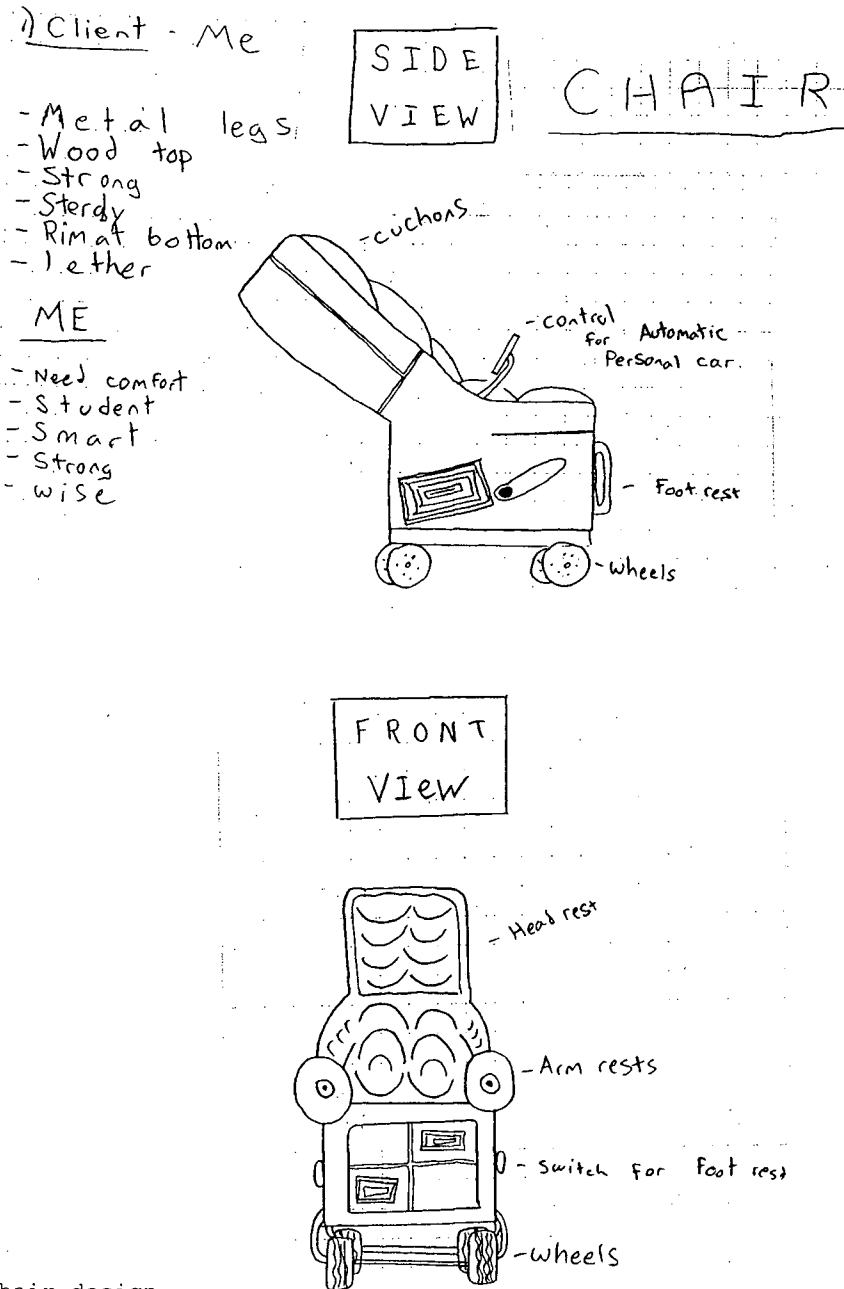 1) Client - Me
- Metal legs
- Wood top
- Strong
- Sterdy
- Rim at bottom
- lether
ME
- Need comfort
- Student
- Smart
- Strong
- wise
SIDE
VIEW
CHAIR
- cuchons
- control
for Automatic
Personal car.
- Foot rest
- wheels
FRONT
VIeW
- Head rest
- Arm rests
- switch for foot rest
- wheels